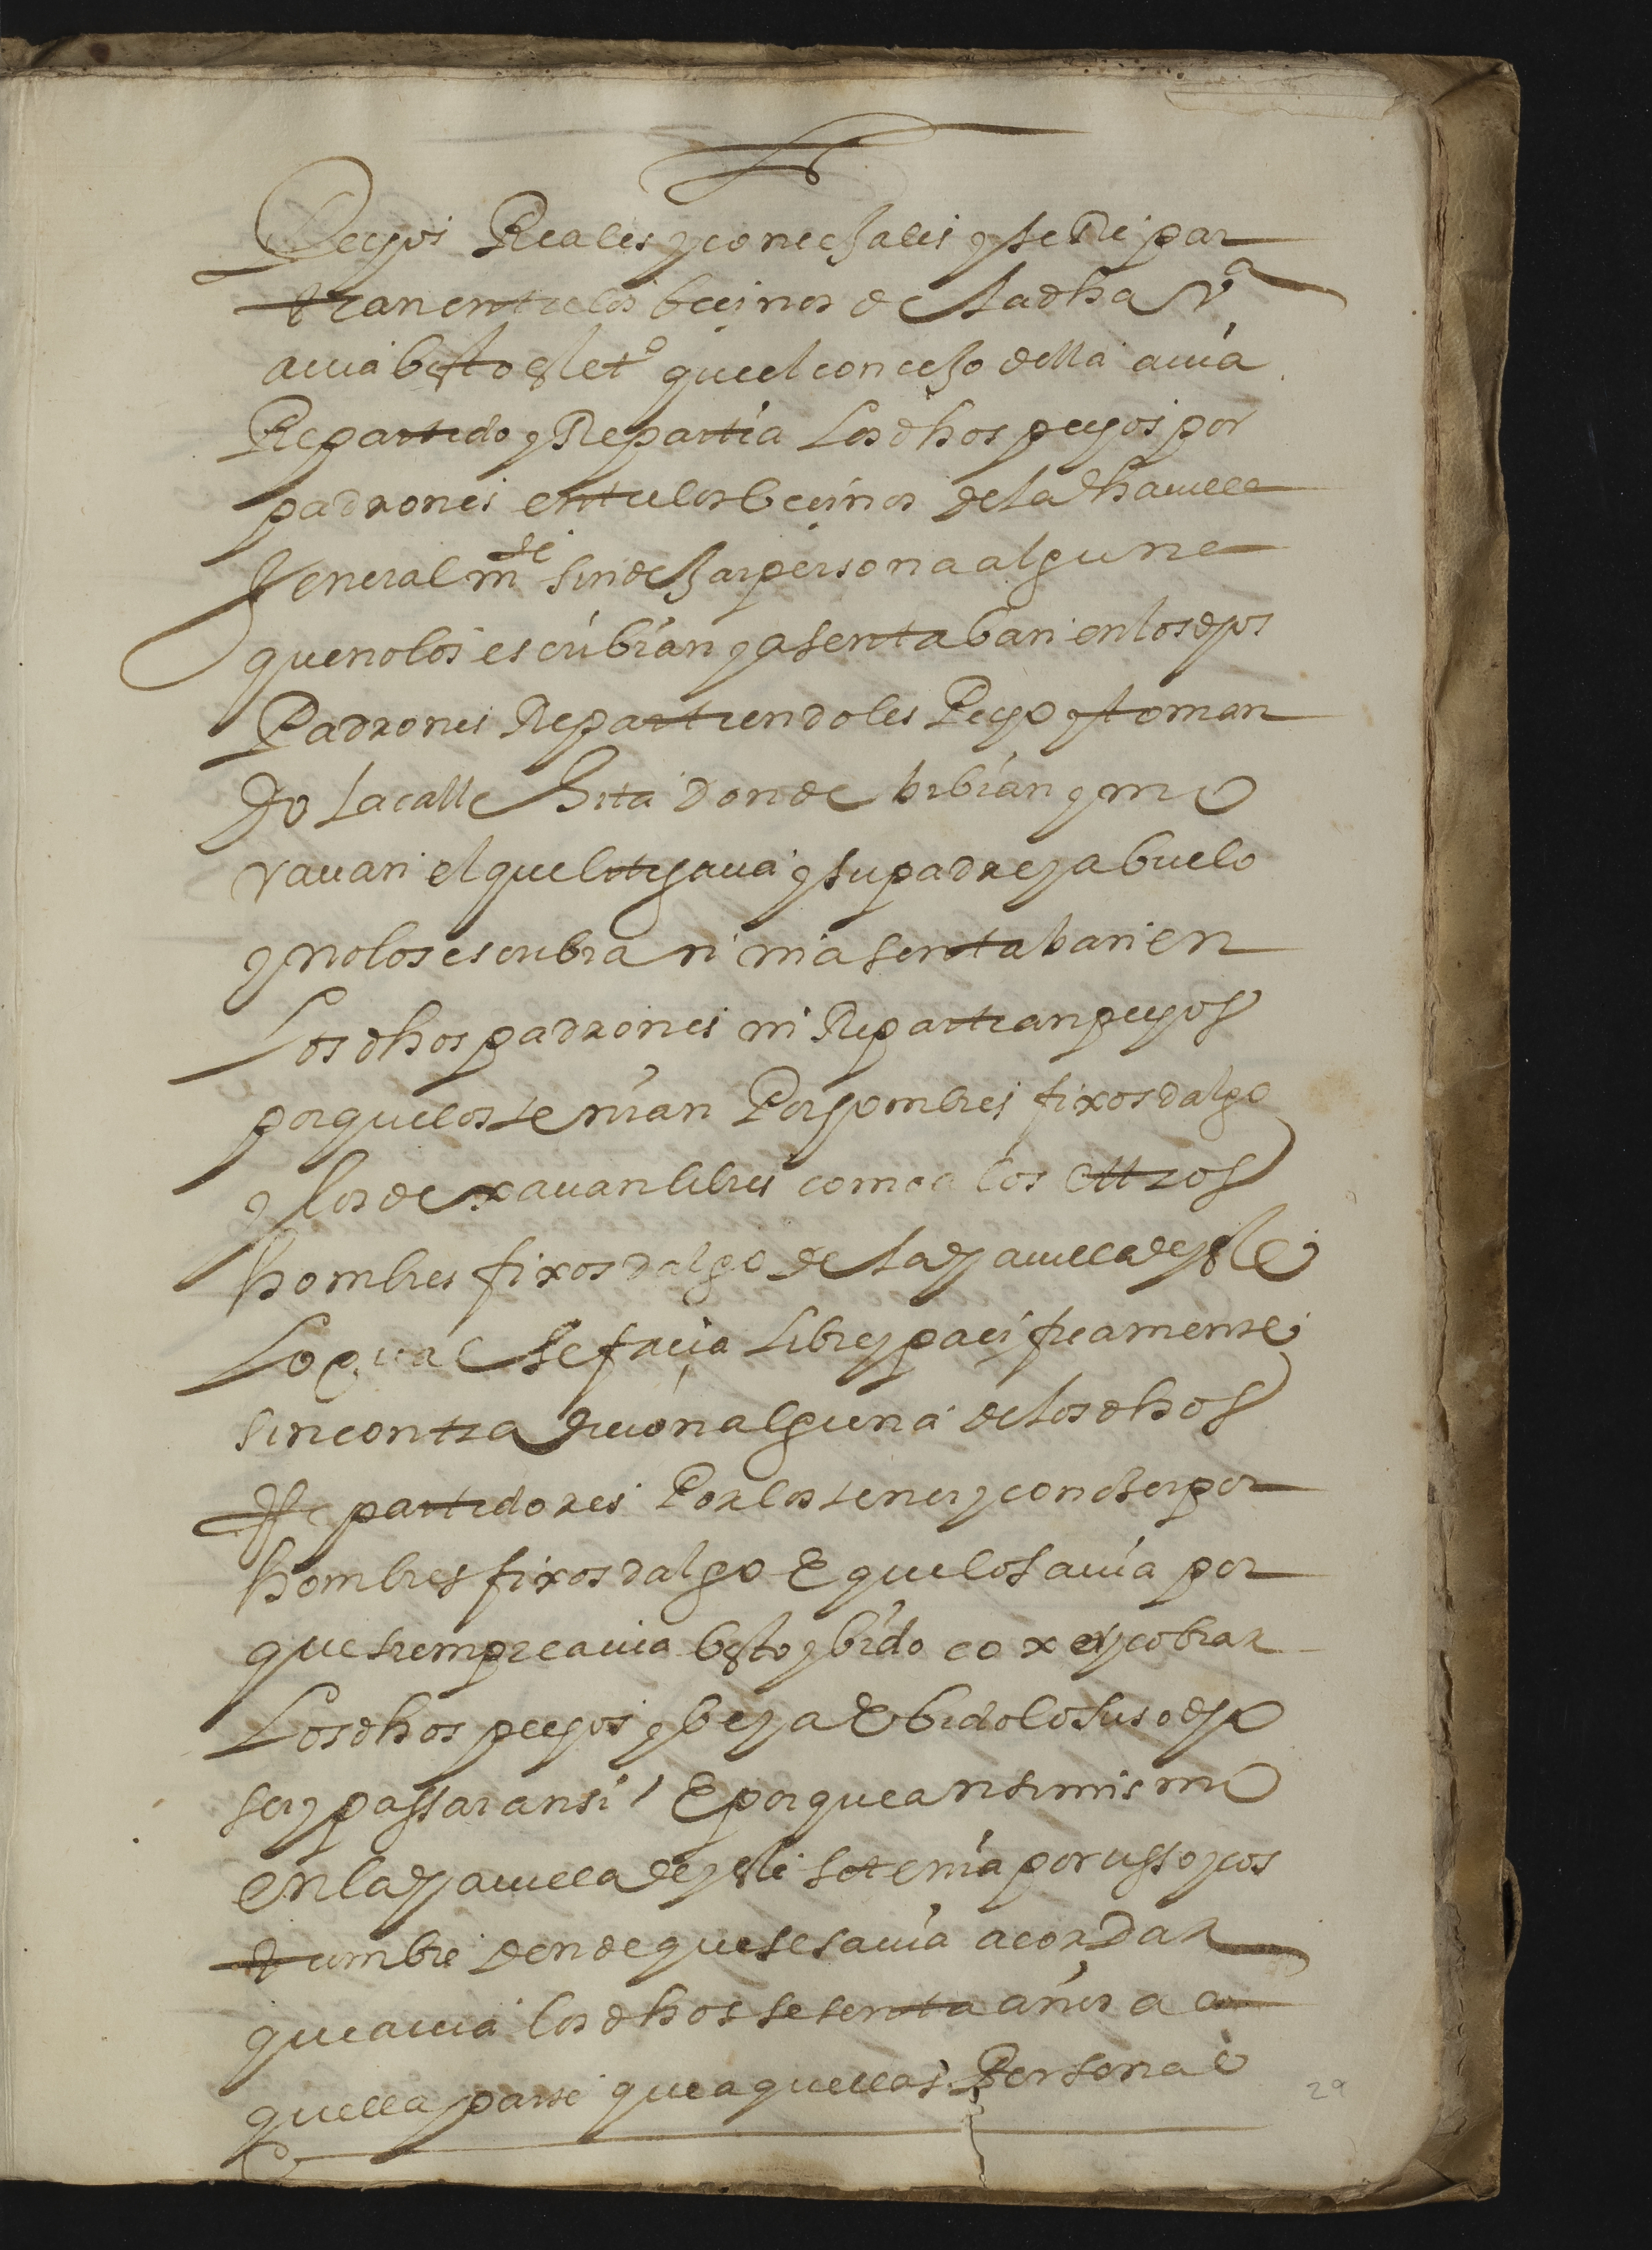 Pechos Reales y conceJales q se Repar
tian entre los beçinos de sta dha Va
auia bisto este to que el conceJo della auia
Repartido y Repartia Los dhos pechos por
padrones entre los beçinos de la dha uilla
Jeneral mte sin deJar persona alguna
que no los escribian y asentaban en los dhos
Padrones Repartiendoles Pecho y toman
do la calle Jita donde bibian y mo
rauan el que litigaua y su padre y abuelo
y no los escribian ni asentaban en
Los dhos padrones ni Repartian pechos
porque los tenian Por hombres fixos dalgo
y los dexauan libres como a los ottros
hombres fixos dalgo de la dha uilla de
Lo qual se facia Libre y pacificamente
sin contradicion alguna de los dhos
Repartidores Por los tener y conoser por
hombres fixos dalgo E que lo sauia por
que siempre auia bisto y bido coxer y cobrar
Los dhos pechos y beya E bido lo suso dho
ser y passar ansi / E porque ansimismo
en la dha uilla de se tenia por usso y cos
tumbre dende que se sauia acordar
que auia los dhos sesenta años a a
quella parte que aquellas Personas
29